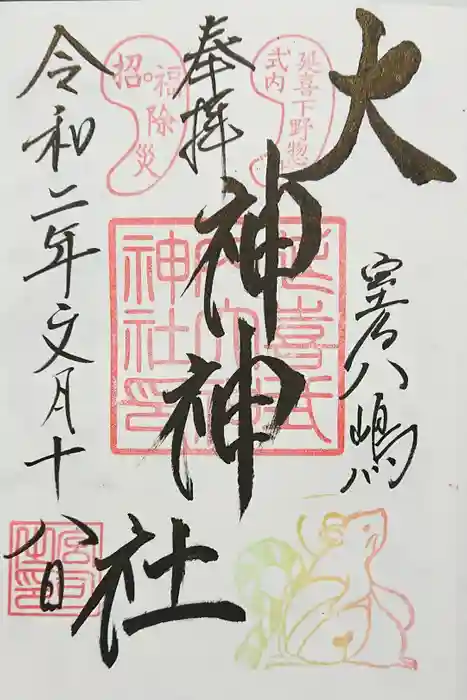 大神神社
室の八嶋
奉拝
令和二年文月十八日
延喜下野惣
式内
招福除災